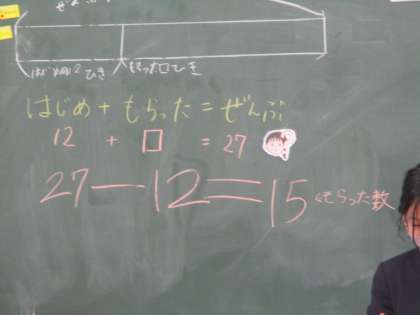 ぜんぶ
はじめ12ひき もらった□ひき
はじめ + もらった = ぜんぶ
12 + □ = 27
27 — 12 = 15 もらった数